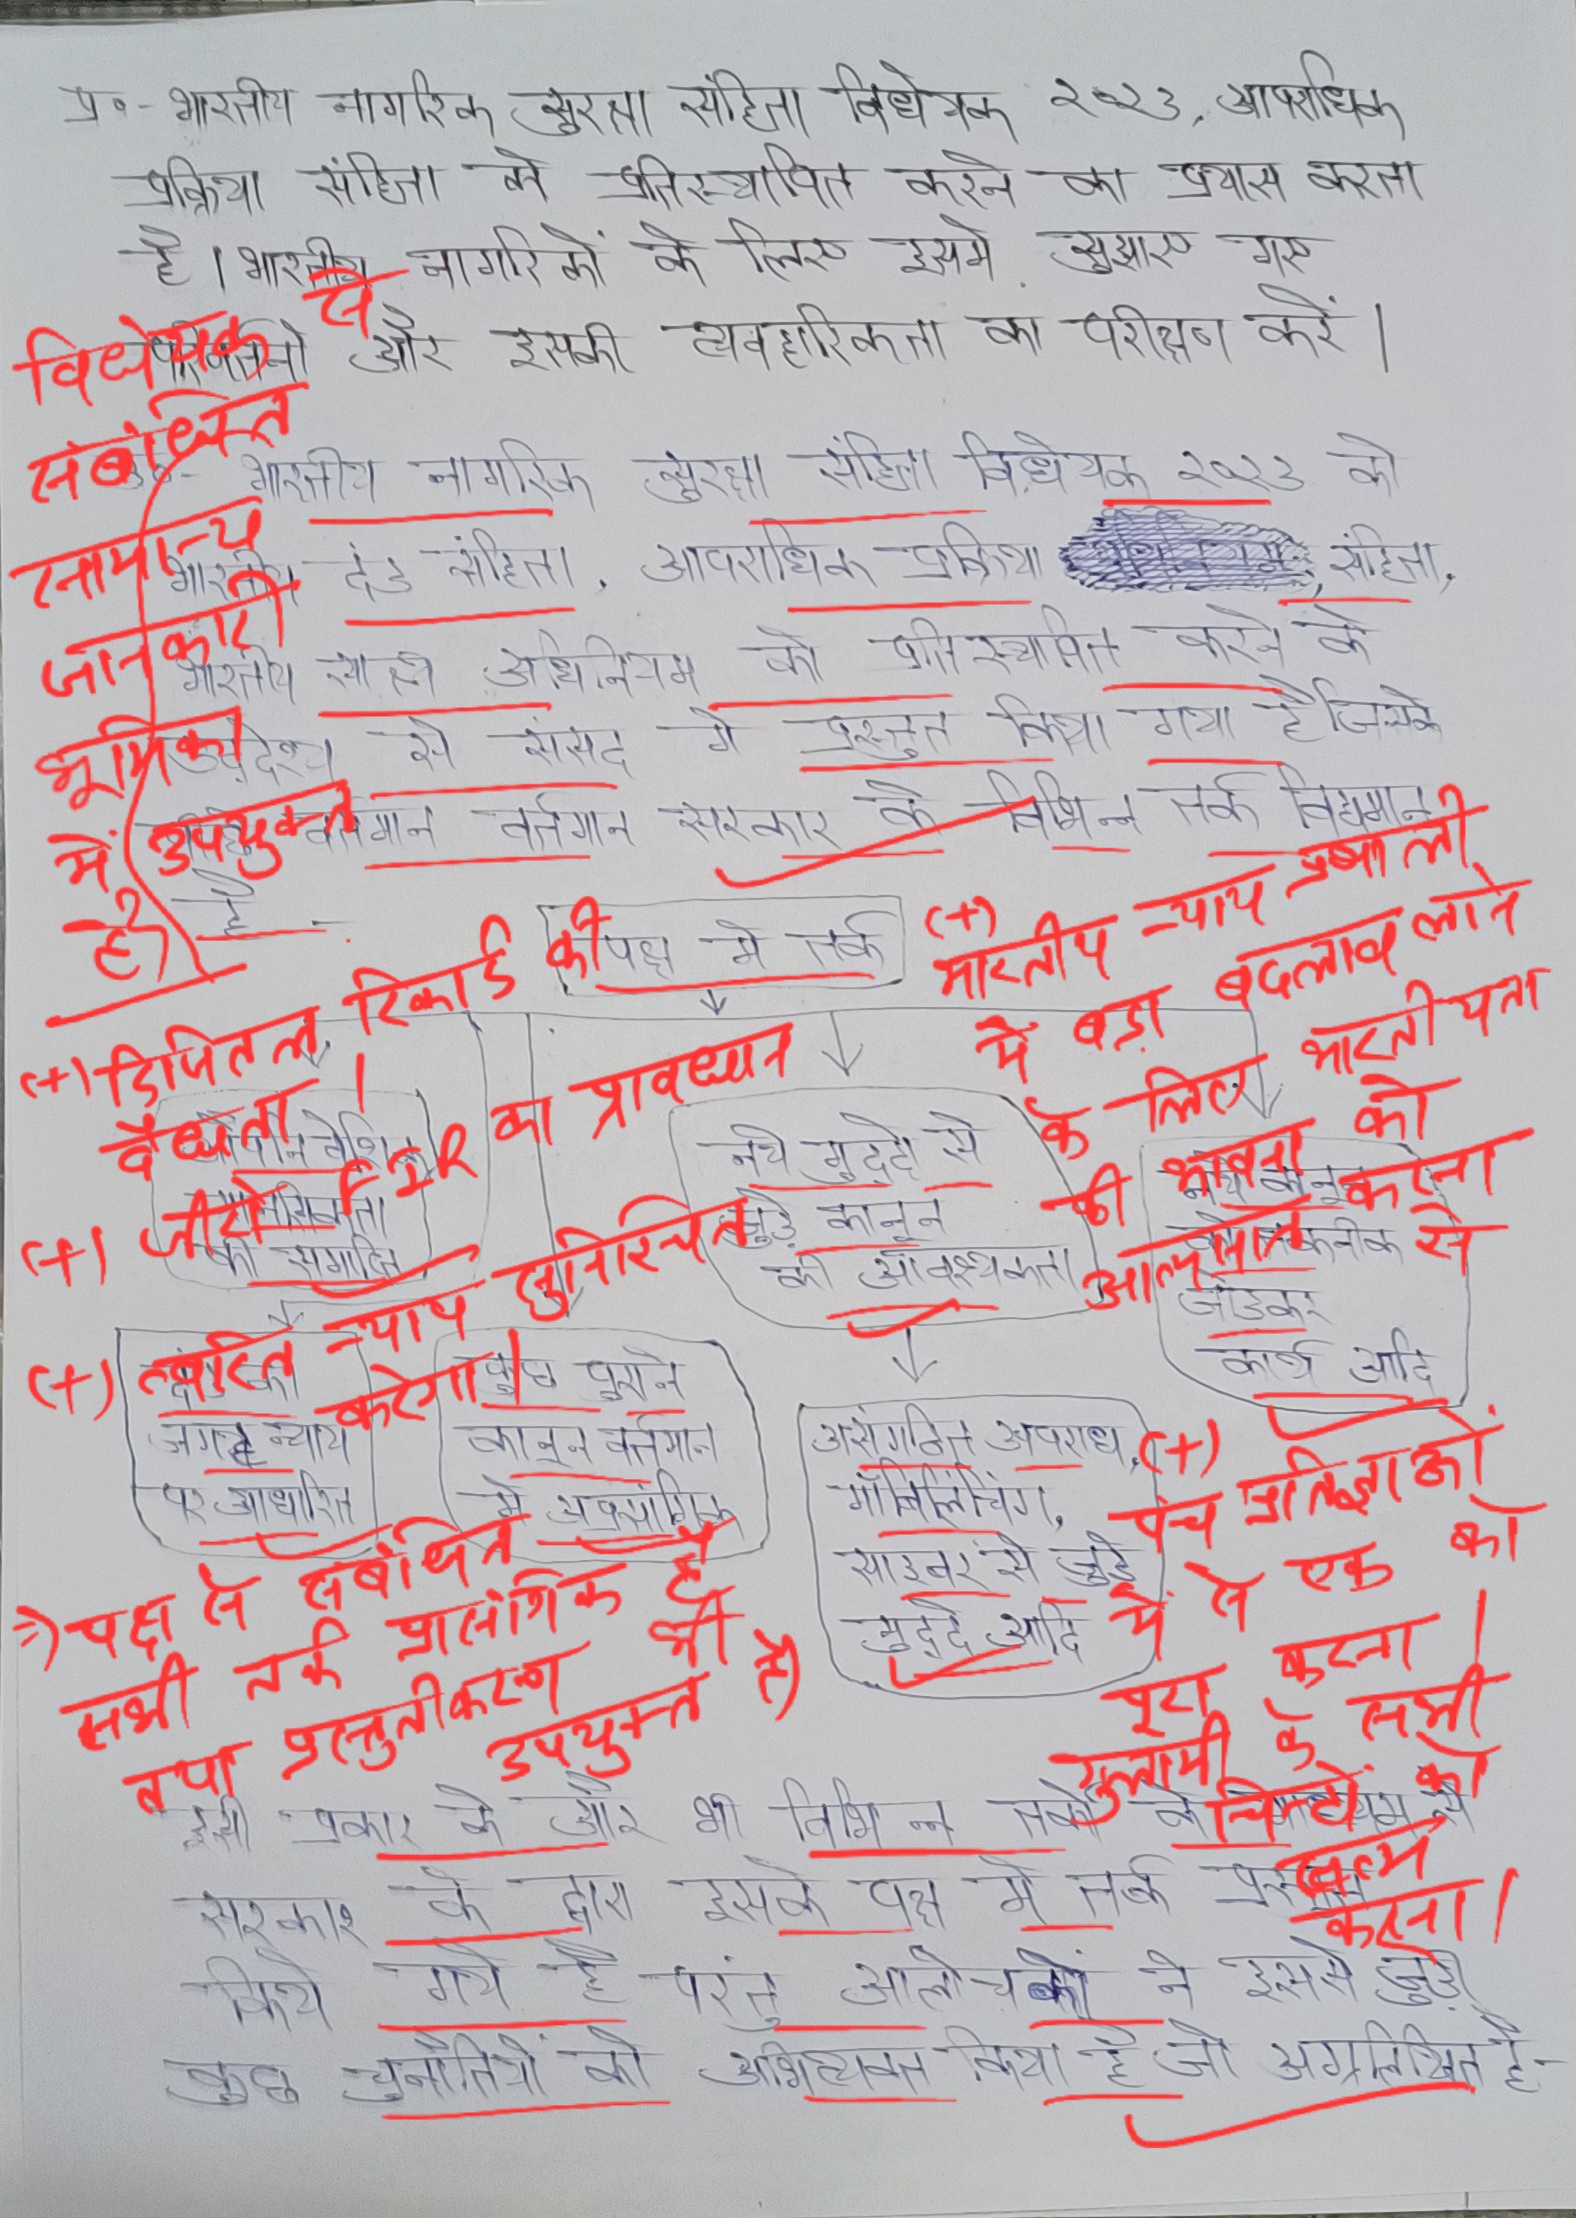 प्र०- भारतीय नागरिक सुरक्षा संहिता विधेयक २०२३, आपराधिक
प्रक्रिया संहिता को प्रतिस्थापित करने का प्रयास करता
है। भारतीय नागरिकों के लिए इसमें सुझाए गए
परिवर्तनों और इसकी व्यवहारिकता का परीक्षण करें।
विधेयक से
संबंधित
सामान्य
जानकारी
भूमिका
में उपयुक्त
है)
उ०- भारतीय नागरिक सुरक्षा संहिता विधेयक २०२३ को
भारतीय दंड संहिता, आपराधिक प्रक्रिया संहिता,
भारतीय साक्ष्य अधिनियम को प्रतिस्थापित करने के
उद्देश्य से संसद में प्रस्तुत किया गया है जिसके
वर्तमान वर्तमान सरकार के विभिन्न तर्क विद्यमान
है -
पक्ष में तर्क
(+)
भारतीय न्याय प्रणाली
में बड़ा बदलाव लाने
के लिए भारतीयता
की भावना को
आत्मसात करना
(+) डिजितल रिकार्ड की
वैधता।
(+) जीरो FIR का प्रावधान
(+) त्वरित न्याय सुनिश्चित
करेगा।
औपनिवेशिक
मानसिकता
की समाप्ति
नये मुद्दों से
जुड़े कानून
की आवश्यकता
नये कानून
को तकनीक से
जोडकर
कार्य आदि
दंड की
जगह न्याय
पर आधारित
कुछ पुराने
कानून वर्तमान
में अप्रसांगिक
असंगठित अपराध,
मॉबलिंचिंग,
साइबर से जुड़े
मुद्दे आदि
(+)
पंच प्रतिज्ञाओं
में से एक को
पूरा करना।
गुलामी के सभी
चिन्हों को
खत्म
करना।
⇒) पक्ष से संबंधित
सभी तर्क प्रासंगिक है
तथा प्रस्तुतीकरण भी
उपयुक्त है)
इसी प्रकार के और भी विभिन्न तर्कों के माध्यम से
सरकार के द्वारा इसके पक्ष में तर्क प्रस्तुत
किये गये है परंतु आलोचकों ने इससे जुड़ी
कुछ चुनौतियों को अभिव्यक्त किया है जो अग्रलिखित है-